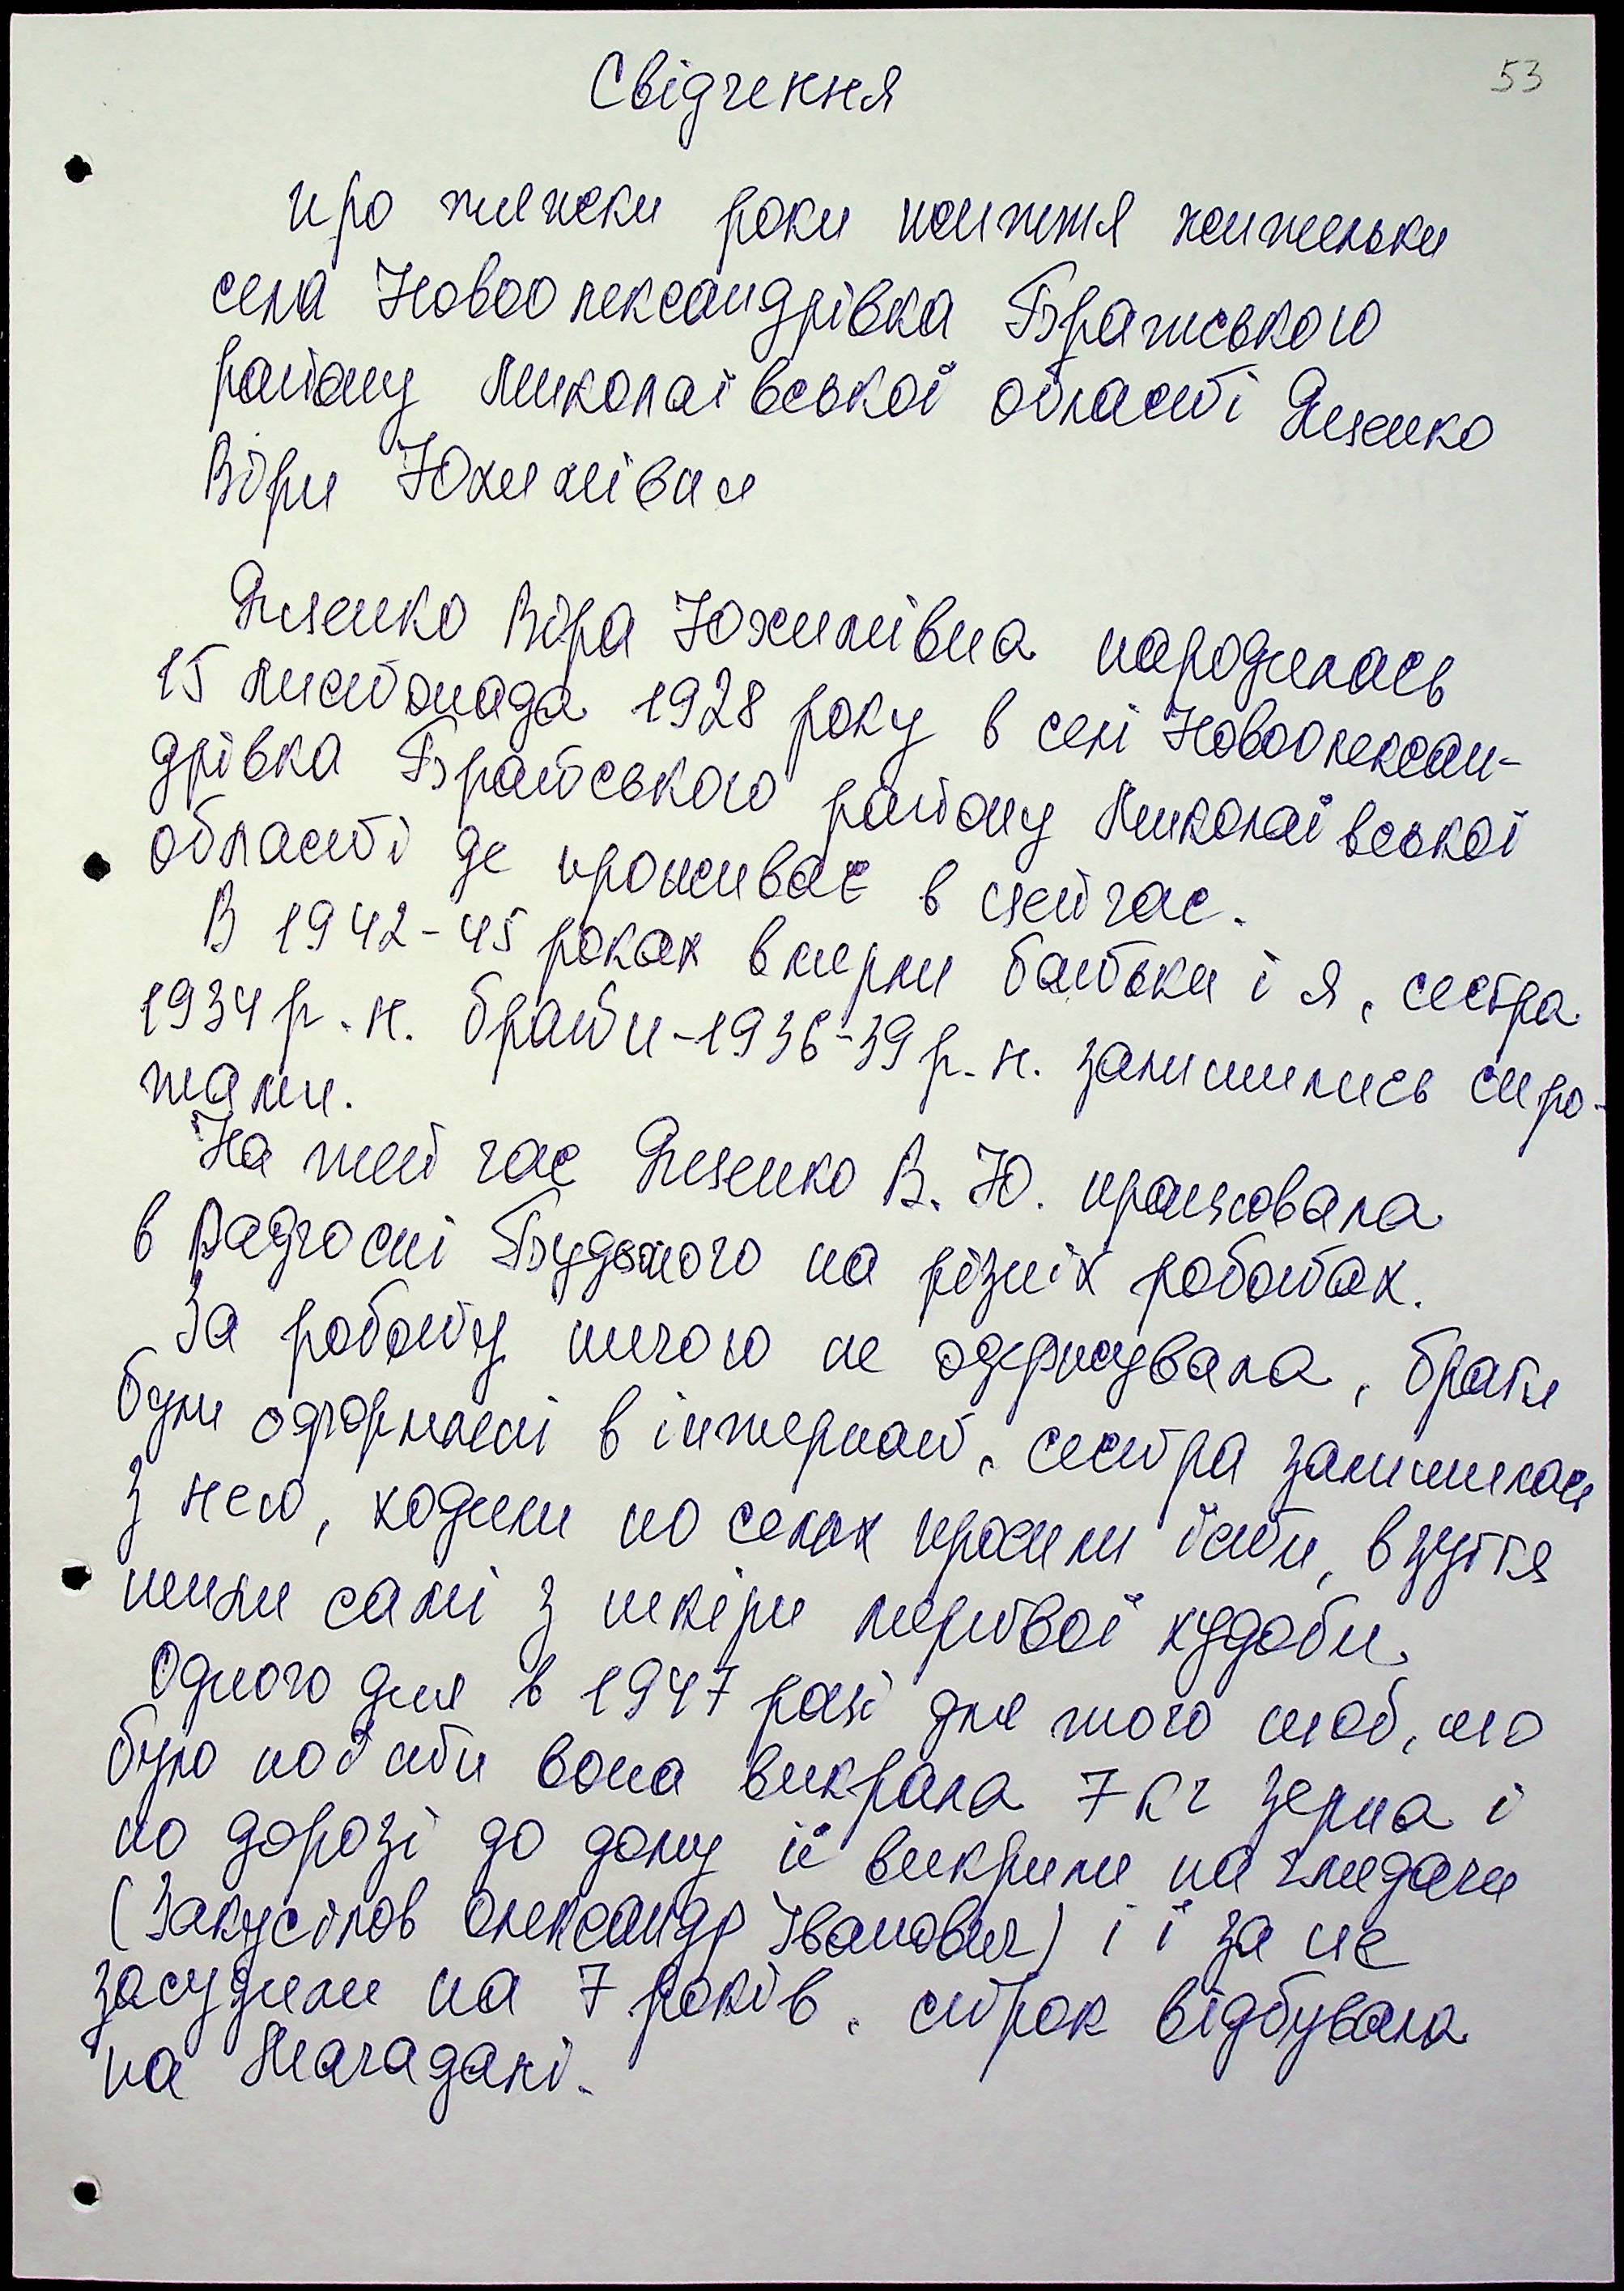 53
Свідчення
про тяжки роки життя жительки
села Новоолександрівка Братського
району Миколаївської області Яценко
Віри Юхимівни
Яценко Віра Юхимівна народилась
15 листопада 1928 року в селі Новоолексан-
дрівка Братського району Миколаївської
області де проживає в цей час.
В 1942-45 роках вмерли батьки і я, сестра
1934 р.н. брати-1936-39 р.н. залишились сиро-
тами.
На той час Яценко В. Ю. працювала
в Радгоспі Будьоного на різних роботах.
За роботу нічого не одержувала, брати
були оформлені в інтернат, сестра залишилась
з нею, ходили по селах просили їсти, взуття
шили самі з шкіри мертвої худоби.
Одного дня в 1947 році для того щоб, що
було поїсти вона викрала 7 кг зерна і
по дорозі до дому її викрили наглядачи
(Закусілов Олександр Іванович) і її за це
засудили на 7 років, строк відбувала
на Магадані.